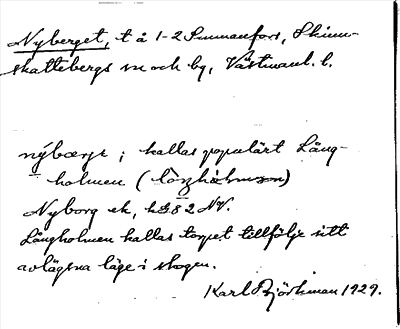 Nyberget, t å 1-2 Simmanfors, Skinn-
skattebergs sn och by, Västmanl. l.
nýbærje ; kallas populärt Lång-
holmen (
Nyborg ek, hGS 2 NV.
Långholmen kallas torpet tillfölje sitt
avlägsna läge i skogen.
Karl Björkman 1929.